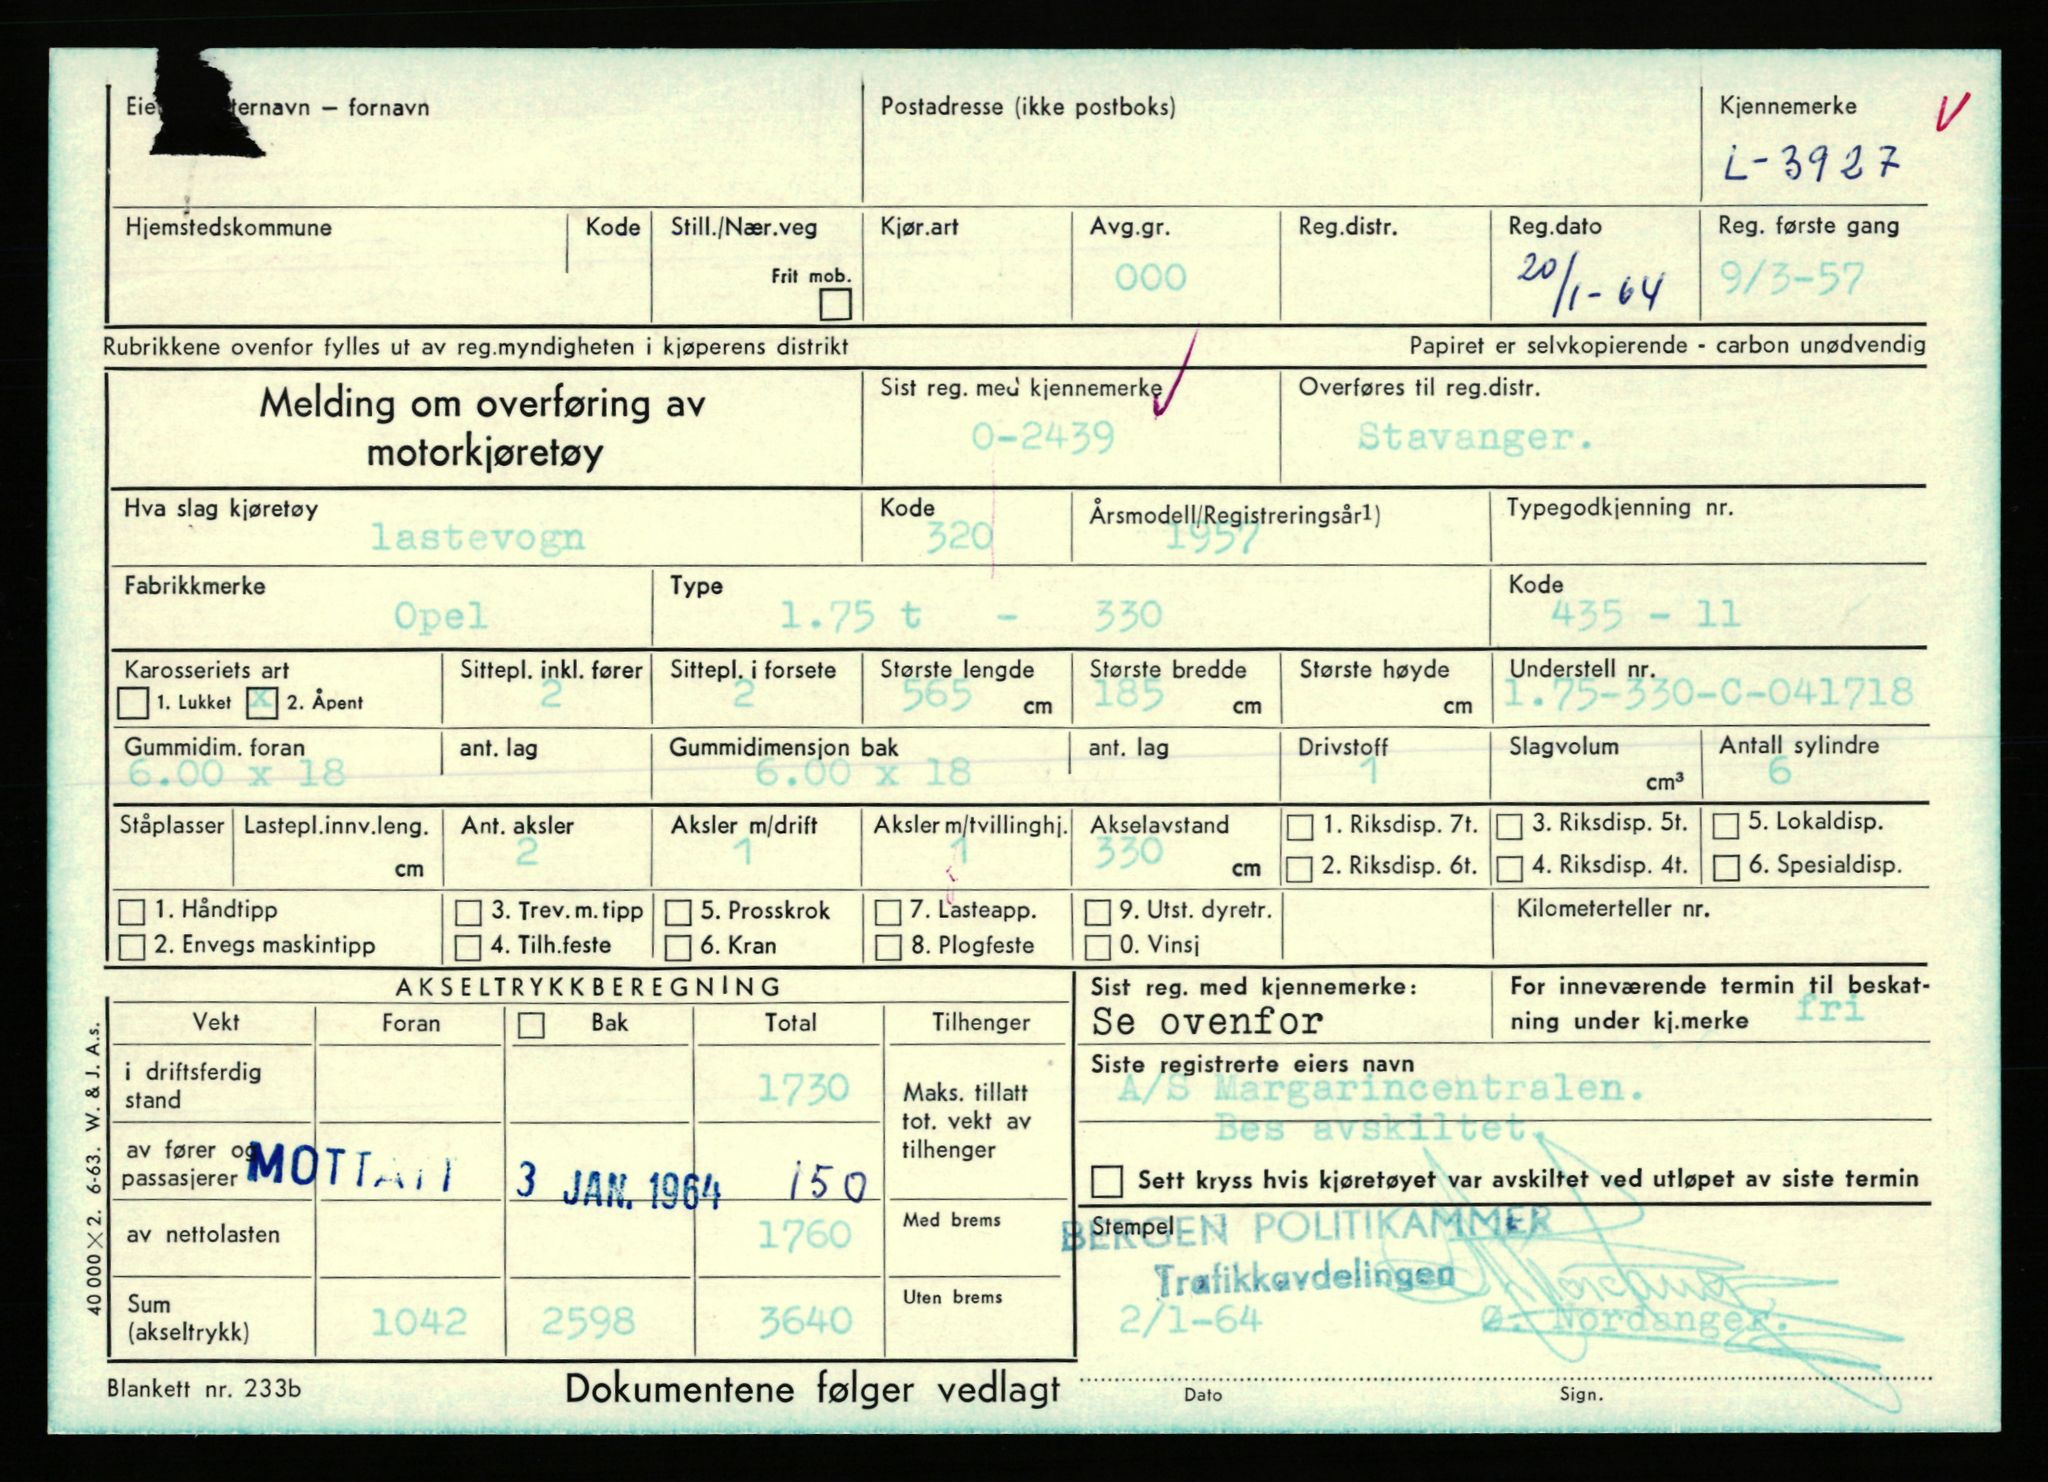 ternavn – fornavn Postadresse (ikke postboks) Kjennemerke V
L-3927
Hjemstedskommune Kode Still./Nær.veg Kjør.art Avg.gr. Reg.distr. Reg.dato Reg. første gang
Frit mob. 000 20/1-64 9/3-57
Rubrikkene ovenfor fylles ut av reg.myndigheten i kjøperens distrikt Papiret er selvkopierende - carbon unødvendig
Melding om overføring av Sist reg. med kjennemerke Overføres til reg.distr.
motorkjøretøy O-2439 Stavanger.
Hva slag kjøretøy Kode Årsmodell/Registreringsår1) Typegodkjenning nr.
lastevogn 320 1957
Fabrikkmerke Type Kode
Opel 1.75 t - 330 435 - 11
Karosseriets art Sittepl. inkl. fører Sittepl. i forsete Største lengde Største bredde Største høyde Understell nr.
1. Lukket x 2. Åpent 2 2 565 cm 185 cm cm 1.75-330-C-041718
Gummidim. foran ant. lag Gummidimensjon bak ant. lag Drivstoff Slagvolum Antall sylindre
6.00 x 18 6.00 x 18 1 cm³ 6
Ståplasser Lastepl.innv.leng. Ant. aksler Aksler m/drift Aksler m/tvillinghj. Akselavstand 1. Riksdisp. 7t. 3. Riksdisp. 5t. 5. Lokaldisp.
cm 2 1 1 330 cm 2. Riksdisp. 6t. 4. Riksdisp. 4t. 6. Spesialdisp.
1. Håndtipp 3. Trev. m. tipp 5. Prosskrok 7. Lasteapp. 9. Utst. dyretr. Kilometerteller nr.
2. Envegs maskintipp 4. Tilh.feste 6. Kran 8. Plogfeste 0. Vinsj
AKSELTRYKKBEREGNING Sist reg. med kjennemerke: For inneværende termin til beskat-
Vekt Foran Bak Total Tilhenger Se ovenfor ning under kj.merke fri
i driftsferdig stand 1730 Maks. tillatt tot. vekt av tilhenger Siste registrerte eiers navn
A/S Margarincentralen.
Bes avskiltet.
av fører og passasjerer MOTTATT 3 JAN. 1964 150 Sett kryss hvis kjøretøyet var avskiltet ved utløpet av siste termin
av nettolasten 1760 Med brems Stempel BERGEN POLITIKAMMER
Trafikkavdelingen
Sum (akseltrykk) 1042 2598 3640 Uten brems 2/1-64 Ø. Nordanger.
40 000 X 2. 6-63. W. & J. A.s.
Blankett nr. 233b Dokumentene følger vedlagt Dato Sign.